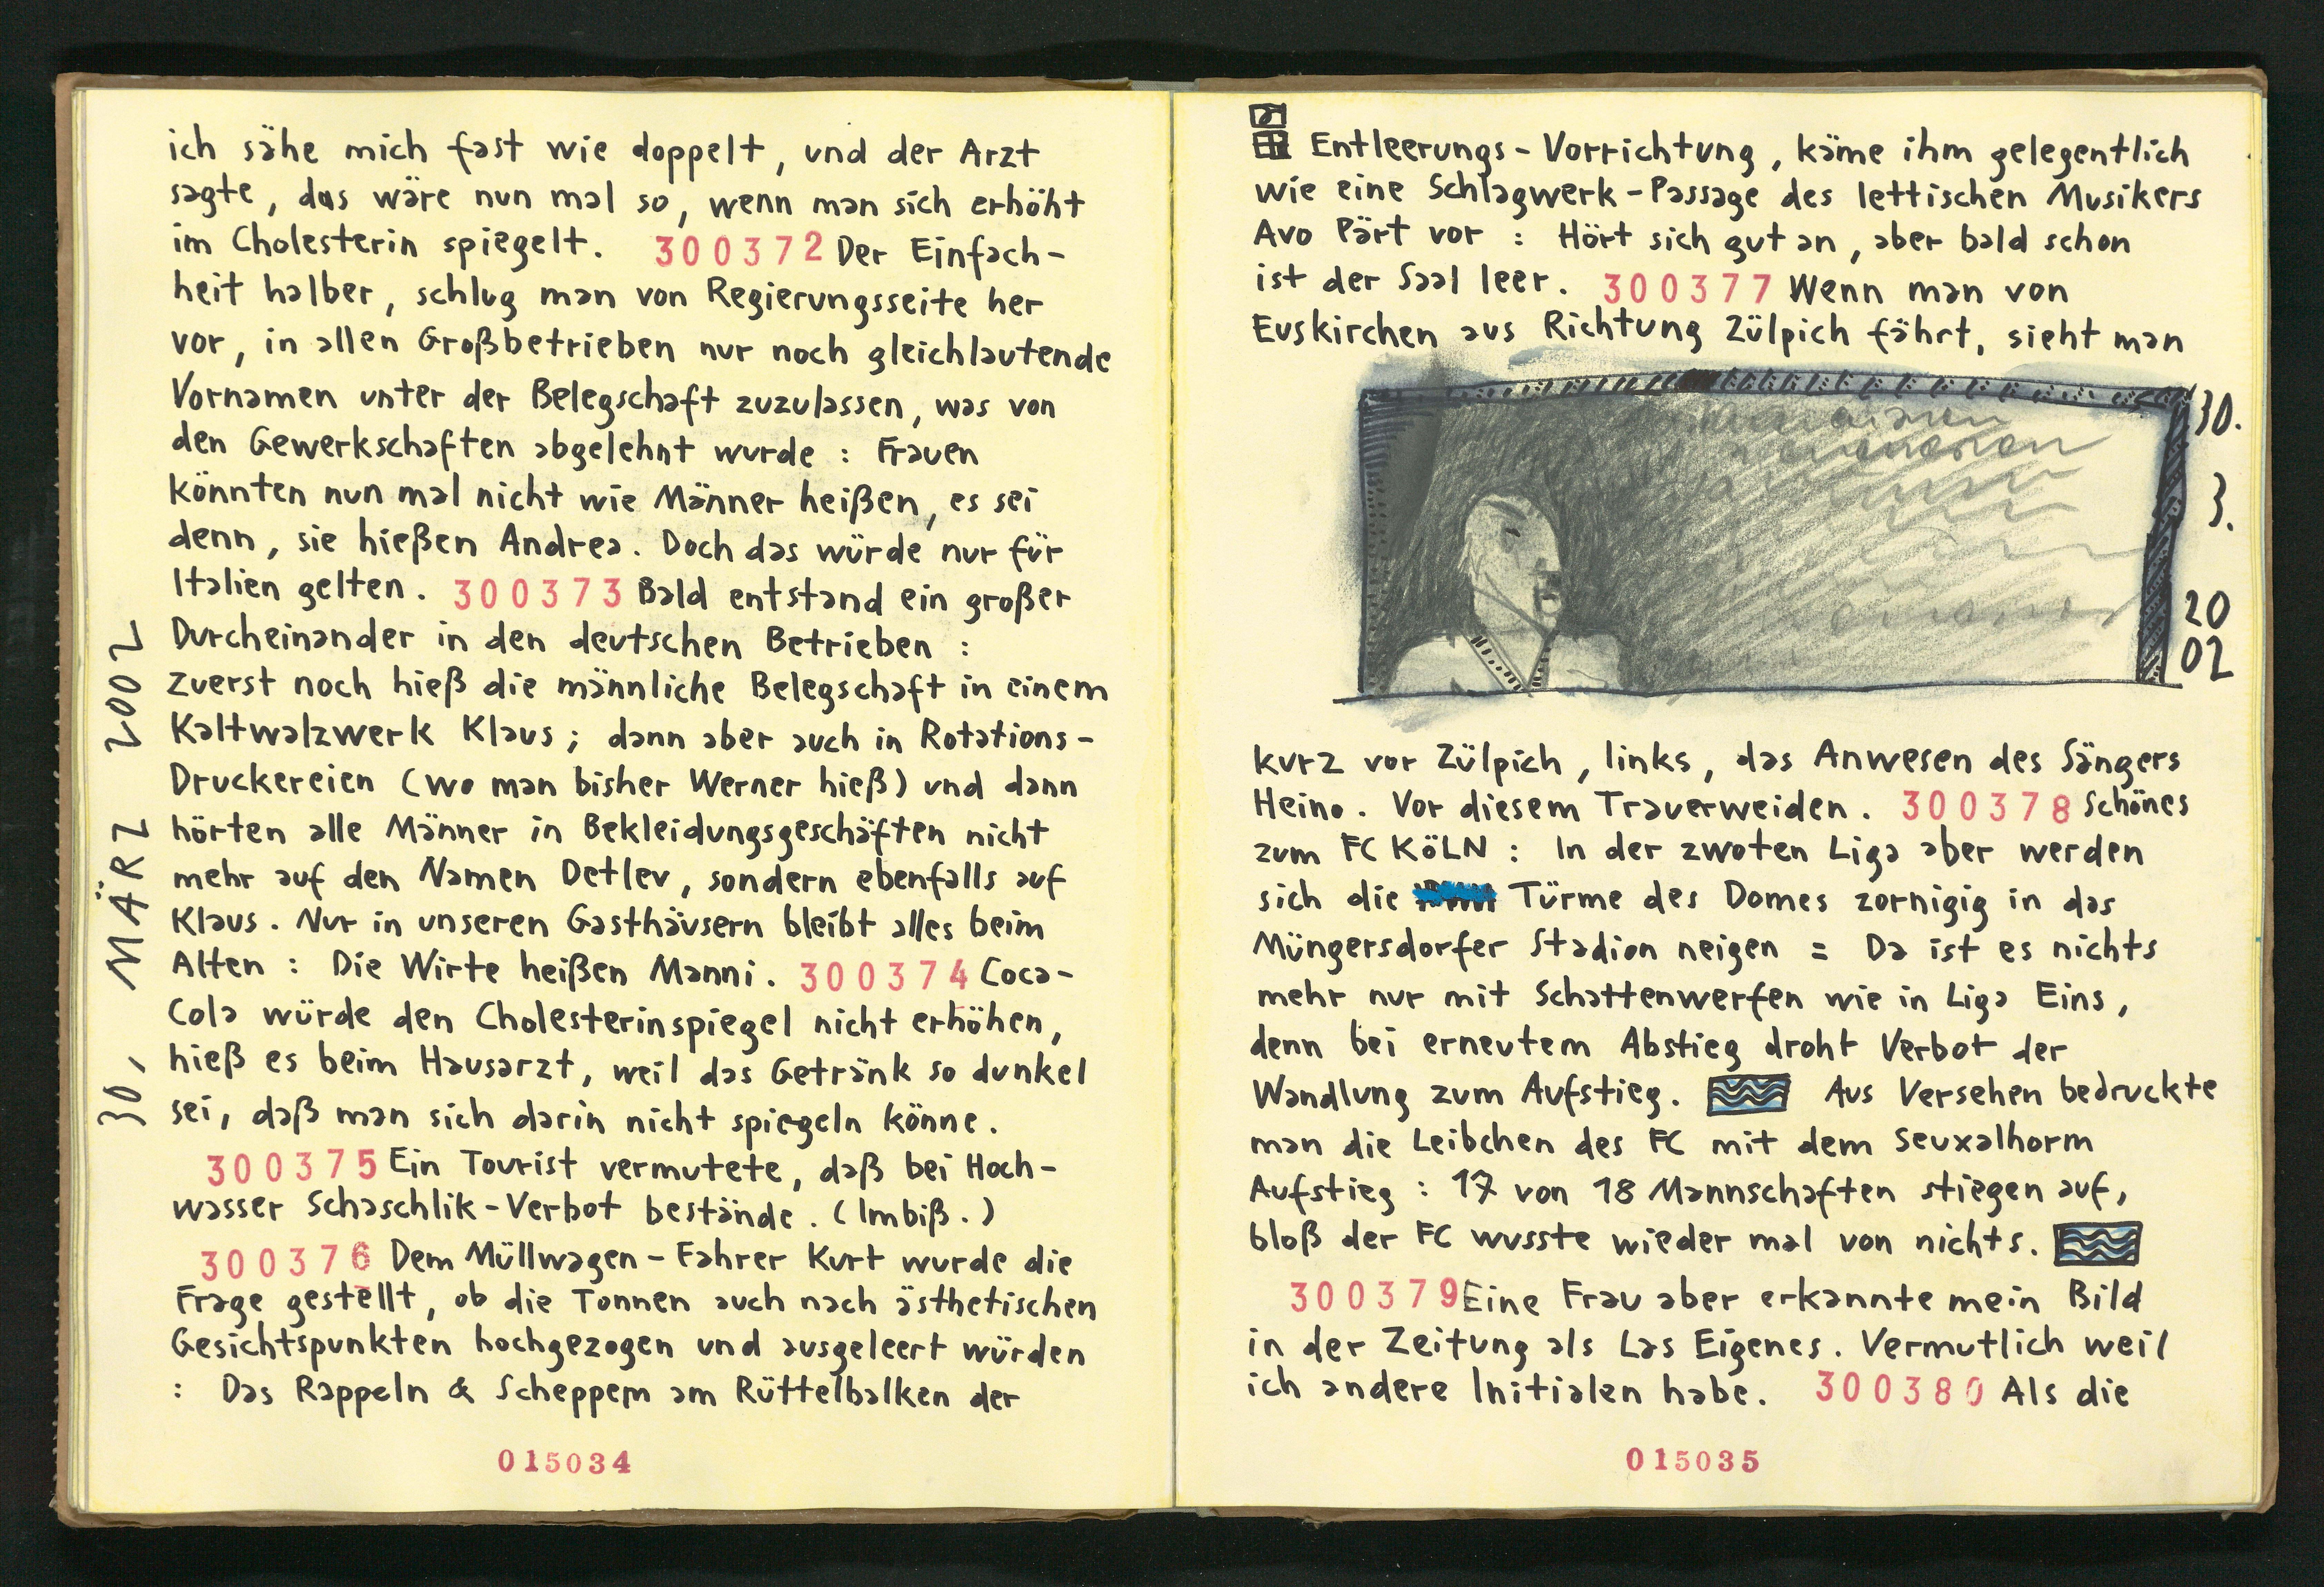 ich sähe mich fast wie doppelt, und der Arzt
sagte, das wäre nun mal so, wenn man sich erhöht
im Cholesterin spiegelt. 300372 Der Einfach-
heit halber, schlug man von Regierungsseite her
vor, in allen Großbetrieben nur noch gleichlautende
Vornamen unter der Belegschaft zuzulassen, was von
den Gewerkschaften abgelehnt wurde : Frauen
könnten nun mal nicht wie Männer heißen, es sei
denn, sie hießen Andrea. Doch das würde nur für
Italien gelten. 300373 Bald entstand ein großer
Durcheinander in den deutschen Betrieben :
zuerst noch hieß die männliche Belegschaft in einem
Kaltwalzwerk Klaus ; dann aber auch in Rotations-
Druckereien (wo man bisher Werner hieß) und dann
hörten alle Männer in Bekleidungsgeschäften nicht
mehr auf den Namen Detlev, sondern ebenfalls auf
Klaus. Nur in unseren Gasthäusern bleibt alles beim
Alten : Die Wirte heißen Manni. 300374 Coca-
Cola würde den Cholesterinspiegel nicht erhöhen,
hieß es beim Hausarzt, weil das Getränk so dunkel
sei, daß man sich darin nicht spiegeln könne.
300375 Ein Tourist vermutete, daß bei Hoch-
wasser Schaschlik-Verbot bestände. (Imbiß.)
300376 Dem Müllwagen-Fahrer Kurt wurde die
Frage gestellt, ob die Tonnen auch nach ästhetischen
Gesichtspunkten hochgezogen und ausgeleert würden
: Das Rappeln & Scheppern am Rüttelbalken der
30, MÄRZ 2002
015034
Entleerungs-Vorrichtung, käme ihm gelegentlich
wie eine Schlagwerk-Passage des lettischen Musikers
Avo Pärt vor : Hört sich gut an, aber bald schon
ist der Saal leer. 300377 Wenn man von
Euskirchen aus Richtung Zülpich fährt, sieht man
30.
3.
20
02
kurz vor Zülpich, links, das Anwesen des Sängers
Heino. Vor diesem Trauerweiden. 300378 Schönes
zum FC KÖLN : In der zwoten Liga aber werden
sich die Türme des Domes zornigig in das
Müngersdorfer Stadion neigen = Da ist es nichts
mehr nur mit Schattenwerfen wie in Liga Eins,
denn bei erneutem Abstieg droht Verbot der
Wandlung zum Aufstieg. Aus Versehen bedruckte
man die Leibchen des FC mit dem Seuxalhorm
Aufstieg : 17 von 18 Mannschaften stiegen auf,
bloß der FC wusste wieder mal von nichts.
300379 Eine Frau aber erkannte mein Bild
in der Zeitung als Las Eigenes. Vermutlich weil
ich andere Initialen habe. 300380 Als die
015035